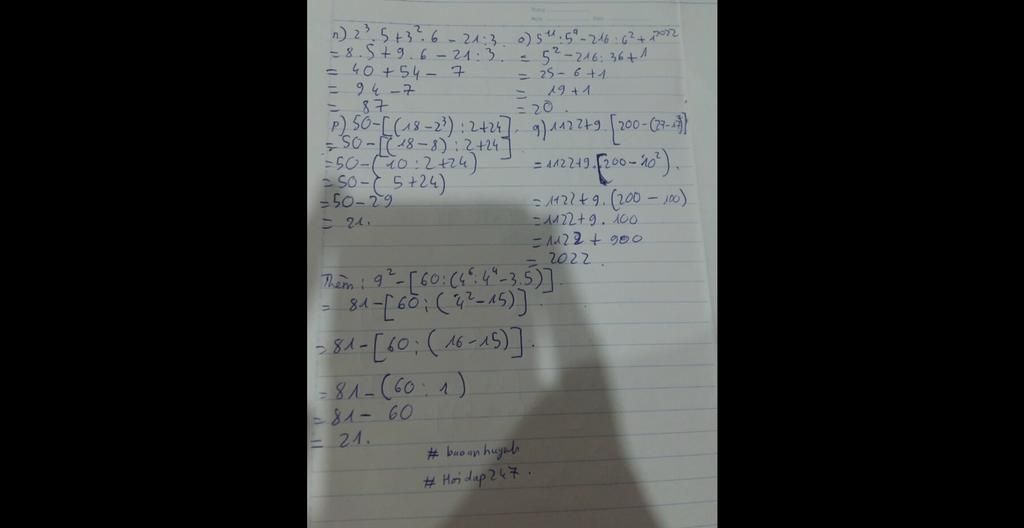 n) 2³.5+3².6-21:3.
= 8.5+9.6-21:3.
= 40+54-7
= 94-7
= 87
o) 5¹¹:5⁹-216:6²+1²⁰²²
= 5²-216:36+1
= 25-6+1
= 19+1
= 20.
p) 50-[(18-2³):2+24].
= 50-[(18-8):2+24]
= 50-(10:2+24)
= 50-(5+24)
= 50-29
= 21.
q) 1122+9.[200-
= 1122+9.[200-10²).
= 1122+9.(200-100)
= 1122+9.100
= 1122+900
= 2022.
Thêm: 9²-[60:(4⁶:4⁴-3.5)].
= 81-[60:(4²-15)].
= 81-[60:(16-15)].
= 81-(60:1)
= 81-60
= 21.
# baoanhuynh
# Hoidap247.